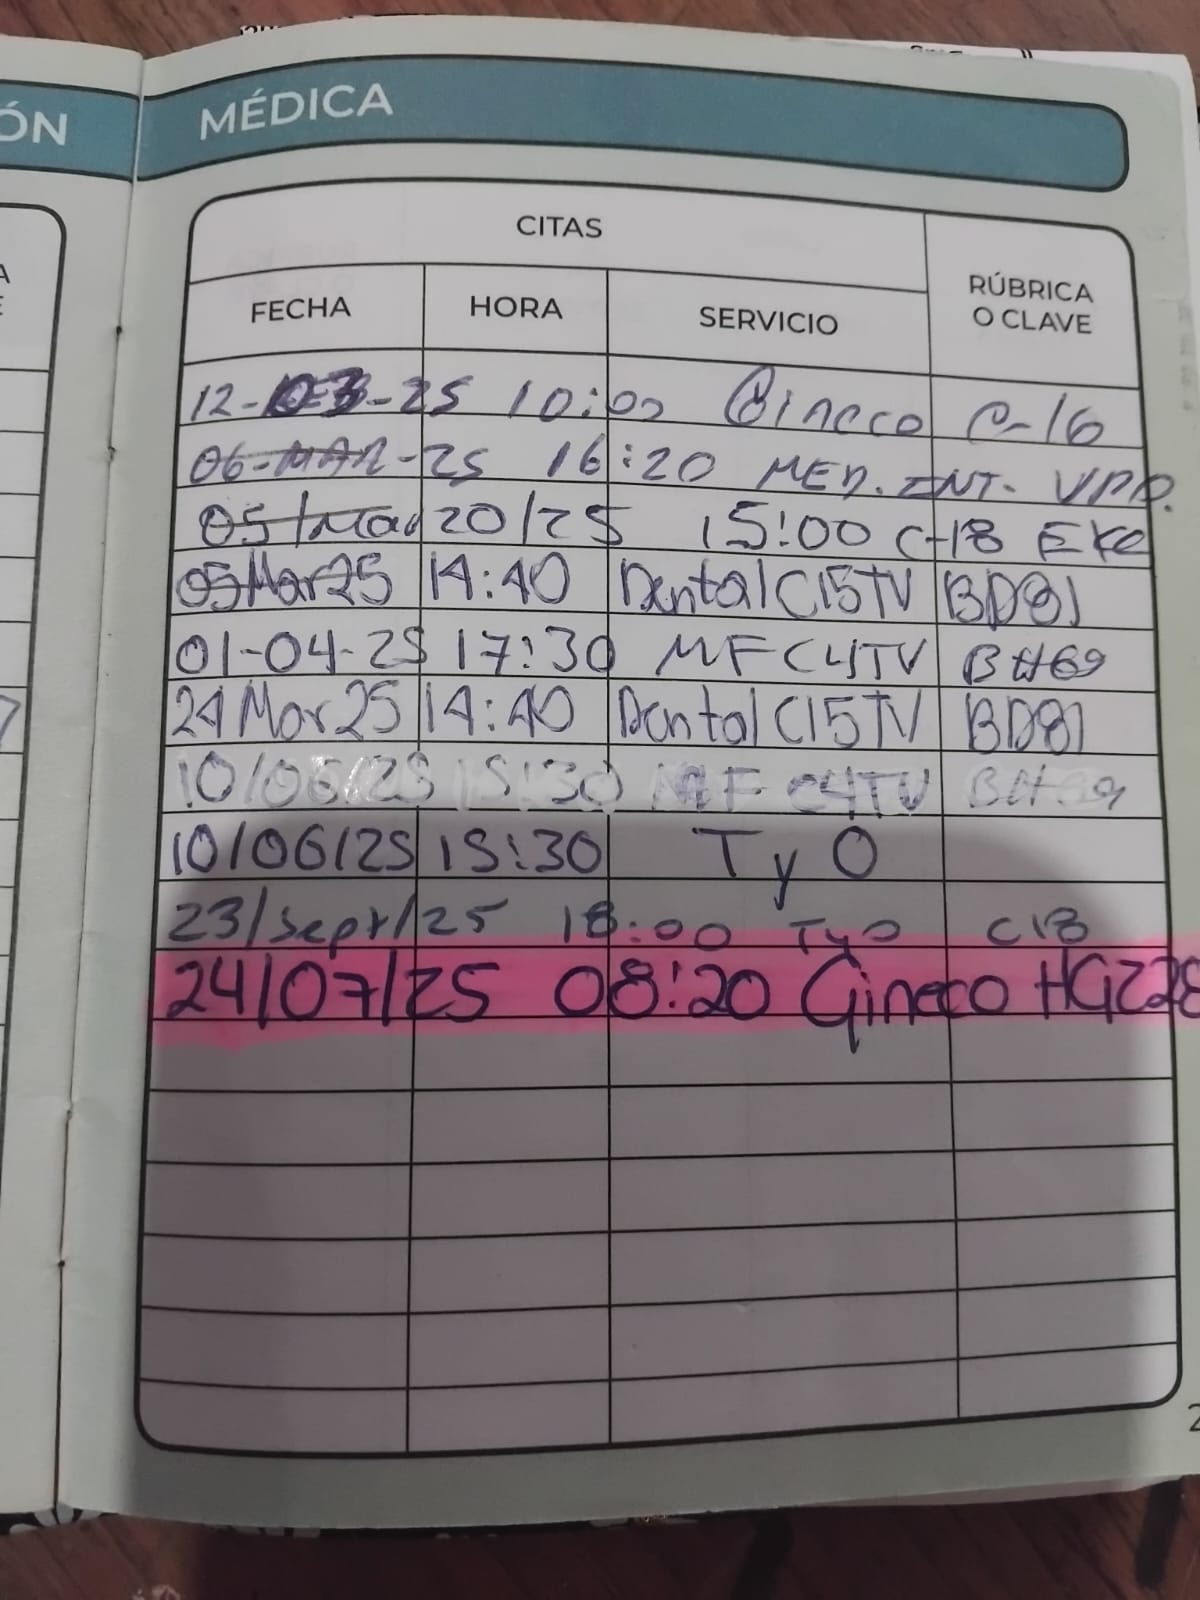 ÓN
MÉDICA
CITAS
FECHA HORA SERVICIO RÚBRICA O CLAVE
12-03-25 10:00 Gineco C-16
06-MAR-25 16:20 MED. INT. VPP.
05/Mar 20/25 15:00 C-18 EKG
05Mar25 14:40 Dental C15TV BD81
01-04-25 17:30 MF C4TV BH69
24Mar25 14:40 Dental C15TV BD81
10/06/25 15:30 MF C4TV BH69
10/06/25 15:30 T y O
23/Sept/25 18:00 TyO C18
24/07/25 08:20 Gineco HGZ28
2